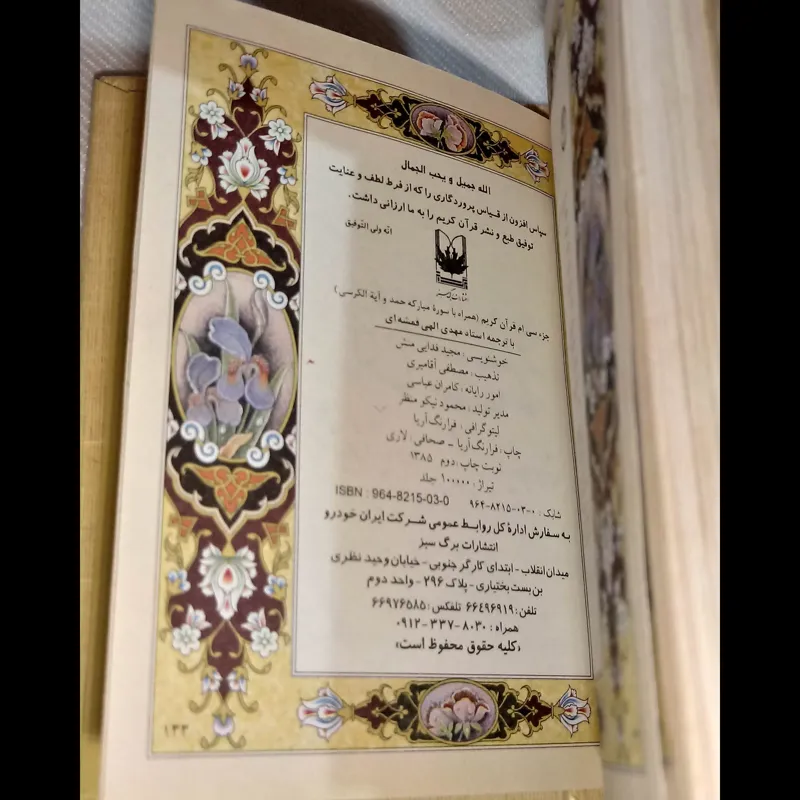 الله جمیل و یحب الجمال
سپاس افزون از قیاس پروردگاری را که از فرط لطف و عنایت
توفیق طبع و نشر قرآن کریم را به ما ارزانی داشت.
انّه ولی التّوفیق
جزء سی ام قرآن کریم (همراه با سورهٔ مبارکه حمد و آیة الکرسی)
با ترجمه استاد مهدی الهی قمشه ای
خوشنویسی: مجید فدایی منش
تذهیب: مصطفی آقامیری
امور رایانه: کامران عباسی
مدیر تولید: محمود نیکو منظر
لیتوگرافی: فرارنگ آریا
چاپ: فرارنگ آریا - صحافی: لاری
نوبت چاپ: دوم ۱۳۸۵
تیراژ: ۱۰۰۰۰۰ جلد
شابک: ۰-۰۳-۸۲۱۵-۹۶۴ ISBN : 964-8215-03-0
به سفارش ادارهٔ کل روابط عمومی شرکت ایران خودرو
انتشارات برگ سبز
میدان انقلاب - ابتدای کارگر جنوبی - خیابان وحید نظری
بن بست بختیاری - پلاک ۲۹۶ - واحد دوم
تلفن: ۶۶۴۹۶۹۱۹ تلفکس: ۶۶۹۷۶۵۸۵
همراه: ۸۰۳۰-۳۳۷-۰۹۱۲
«کلیه حقوق محفوظ است»
۱۳۳